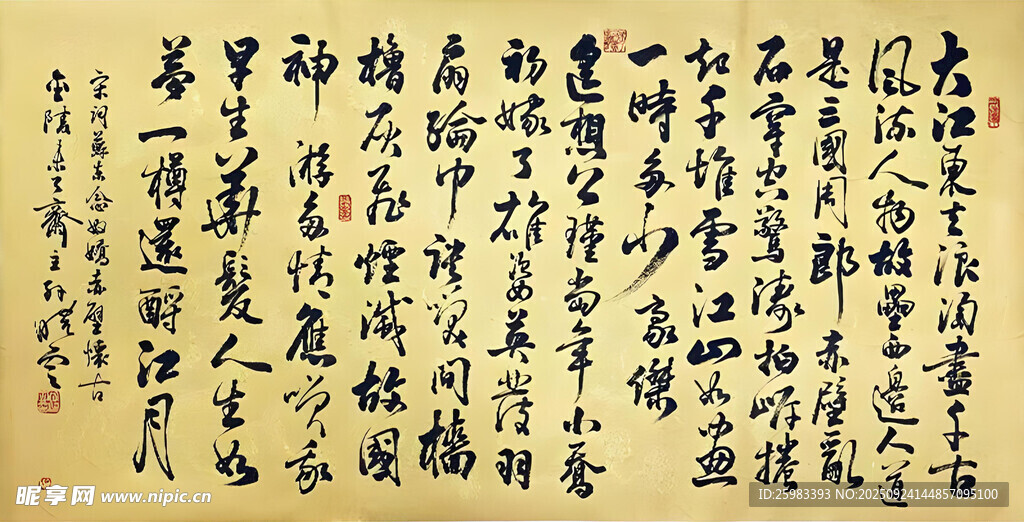 大江東去浪淘盡千古
風流人物故壘西邊人道
是三國周郎赤壁亂
石穿空驚濤拍岸捲
起千堆雪江山如畫
一時多少豪傑
遙想公瑾當年小喬
初嫁了雄姿英發羽
扇綸巾談笑間檣
櫓灰飛煙滅故國
神游多情應笑我
早生華髮人生如
夢一樽還酹江月
宋詞蘇東念奴嬌赤壁懷古
金陵未了齋主孫曉云
昵享网 www.nipic.cn
ID:25983393 NO:20250924144857095100